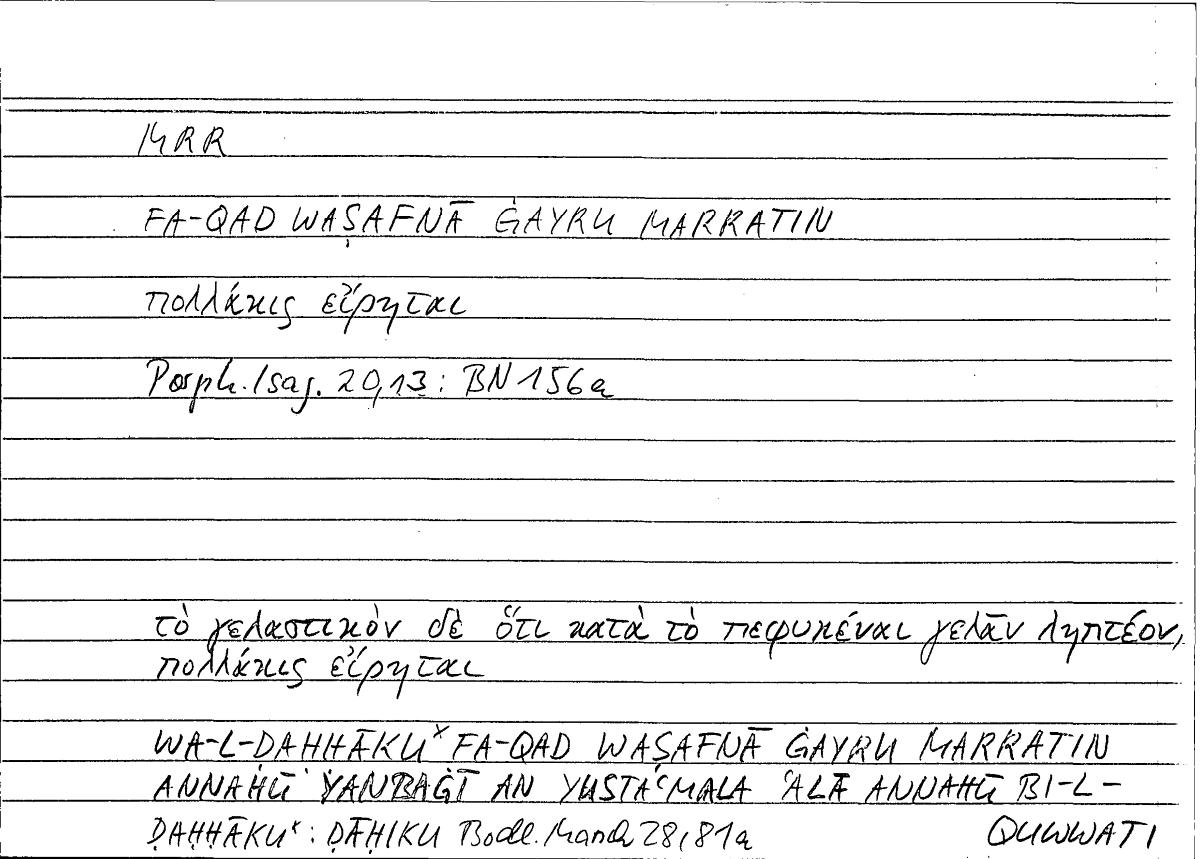 MRR
FA-QAD WAṢAFNĀ ĠAYRU MARRATIN
πολλάκις εἴρηται
Porph. Isag. 20,13: BN 156a
τὸ γελαστικὸν δὲ ὅτι κατὰ τὸ πεφυκέναι γελᾶν ληπτέον,
πολλάκις εἴρηται
WA-L-DAHHĀKUˣ FA-QAD WAṢAFNĀ ĠAYRU MARRATIN
ANNAHŪ YANBAĠĪ AN YUSTAʿMALA ʿALĀ ANNAHŪ BI-L-
QUWWATI
ḌAḤḤĀKUˣ: ḌĀḤIKU Bodl. Marsh 28,81a